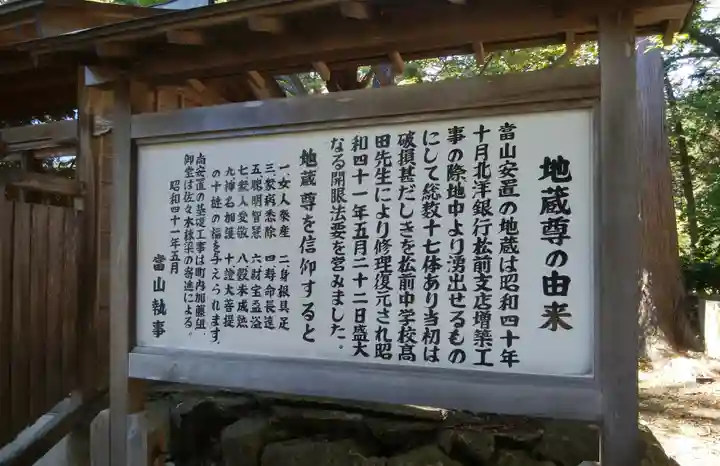 地蔵尊の由来
當山安置の地蔵は昭和四十年
十月北洋銀行松前支店増築工
事の際地中より湧出せるもの
にして総数十七体あり当初は
破損甚だしきを松前中学校高
田先生により修理復元され昭
和四十一年五月二十二日盛大
なる開眼法要を営みました。
地蔵尊を信仰すると
一女人泰産 二身根具足
三衆病悉除 四寿命長遠
五聡明智慧 六財宝盈溢
七衆人愛敬 八穀米成熟
九神名加護 十證大菩提
の十種の福を与えられます。
尚安置の基礎工事は町内加藤組、
御堂は佐々木棟梁の寄進による。
昭和四十一年五月
當山執事